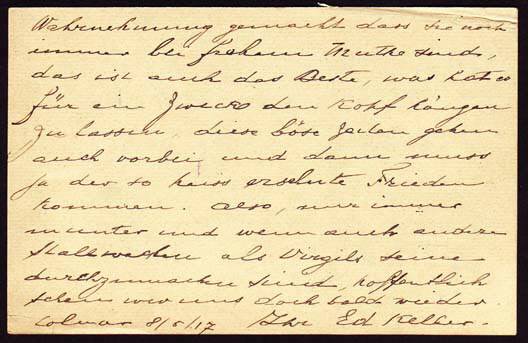 Wahrnehmung gemacht dass sie noch
immer bei frohem Mute sind,
das ist auch das Beste, was hat es
für ein Zweck den Kopf hängen
zu lassen, diese böse Zeiten gehen
auch vorbei und dann muss
ja der so heiss ersehnte Frieden
kommen. Also, nur immer
munter und wenn auch andere
Stallwachen als Virgils seine
durchzumachen sind, hoffentlich
sehen wir uns doch bald wieder.
Colmar 8/5/17 Ihr Ed Keller.